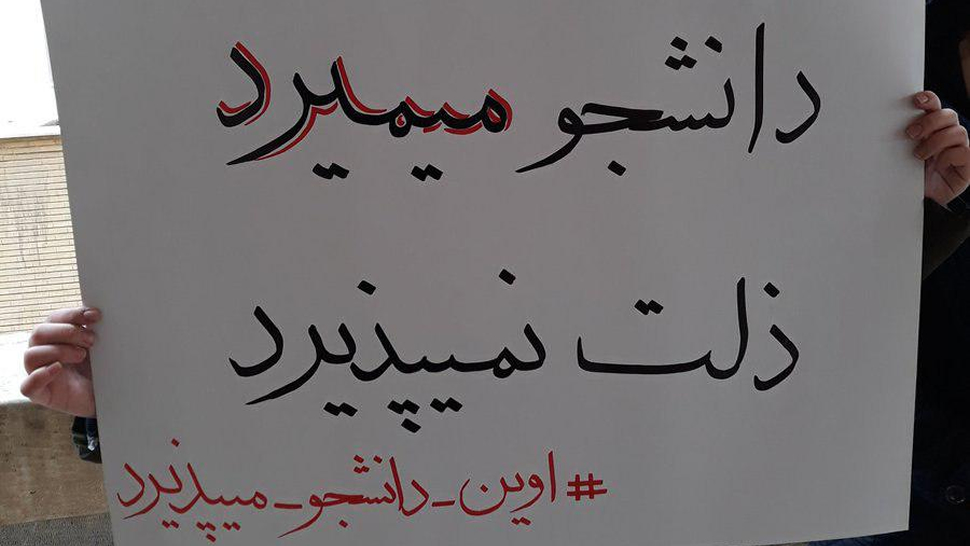 دانشجو میمیرد
ذلت نمیپذیرد
#اوین_دانشجو_میپذیرد